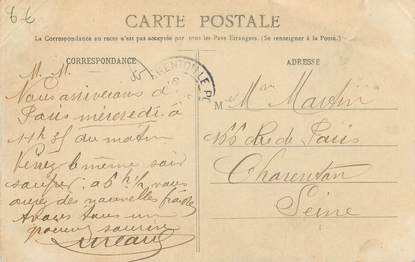 6€
CARTE POSTALE
La Correspondance au recto n'est pas acceptée par tous les Pays Etrangers. (Se renseigner à la Poste).
CORRESPONDANCE
ADRESSE
M. M.
Nous arriverons à
Paris mercredi à
11h 35 du matin
Venez le même soir
souper à 6 h 1/2 vous
aurez des nouvelles
tous un
M
Martin
155 Rue de Paris
Charenton
Seine